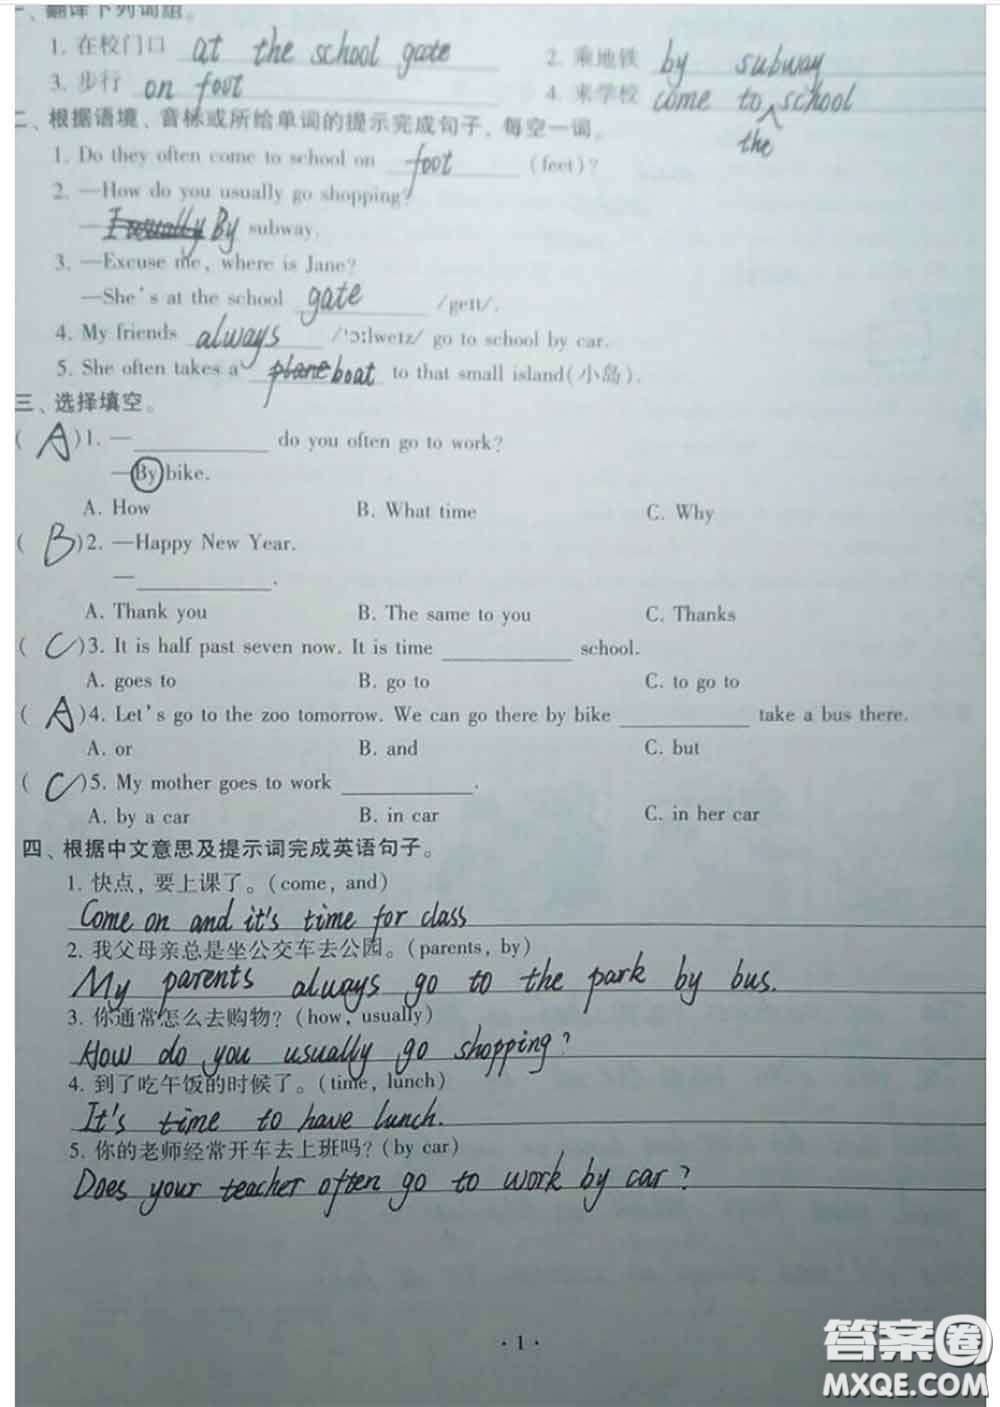 一、翻译下列词组。
1. 在校门口 at the school gate 2. 乘地铁 by subway
3. 步行 on foot 4. 来学校 come to school
the
二、根据语境、音标或所给单词的提示完成句子，每空一词。
1. Do they often come to school on foot (feet)?
2. —How do you usually go shopping?
—I usually By subway.
3. —Excuse me, where is Jane?
—She's at the school gate /geɪt/.
4. My friends always /'ɔ:lweɪz/ go to school by car.
5. She often takes a plane boat to that small island(小岛).
三、选择填空。
( A )1. — ________ do you often go to work?
—By bike.
A. How B. What time C. Why
( B )2. —Happy New Year.
— ________.
A. Thank you B. The same to you C. Thanks
( C )3. It is half past seven now. It is time ________ school.
A. goes to B. go to C. to go to
( A )4. Let's go to the zoo tomorrow. We can go there by bike ________ take a bus there.
A. or B. and C. but
( C )5. My mother goes to work ________.
A. by a car B. in car C. in her car
四、根据中文意思及提示词完成英语句子。
1. 快点，要上课了。(come, and)
Come on and it's time for class
2. 我父母亲总是坐公交车去公园。(parents, by)
My parents always go to the park by bus.
3. 你通常怎么去购物？(how, usually)
How do you usually go shopping?
4. 到了吃午饭的时候了。(time, lunch)
It's time to have lunch.
5. 你的老师经常开车去上班吗？(by car)
Does your teacher often go to work by car?
· 1 ·
答案圈
MXQE.COM